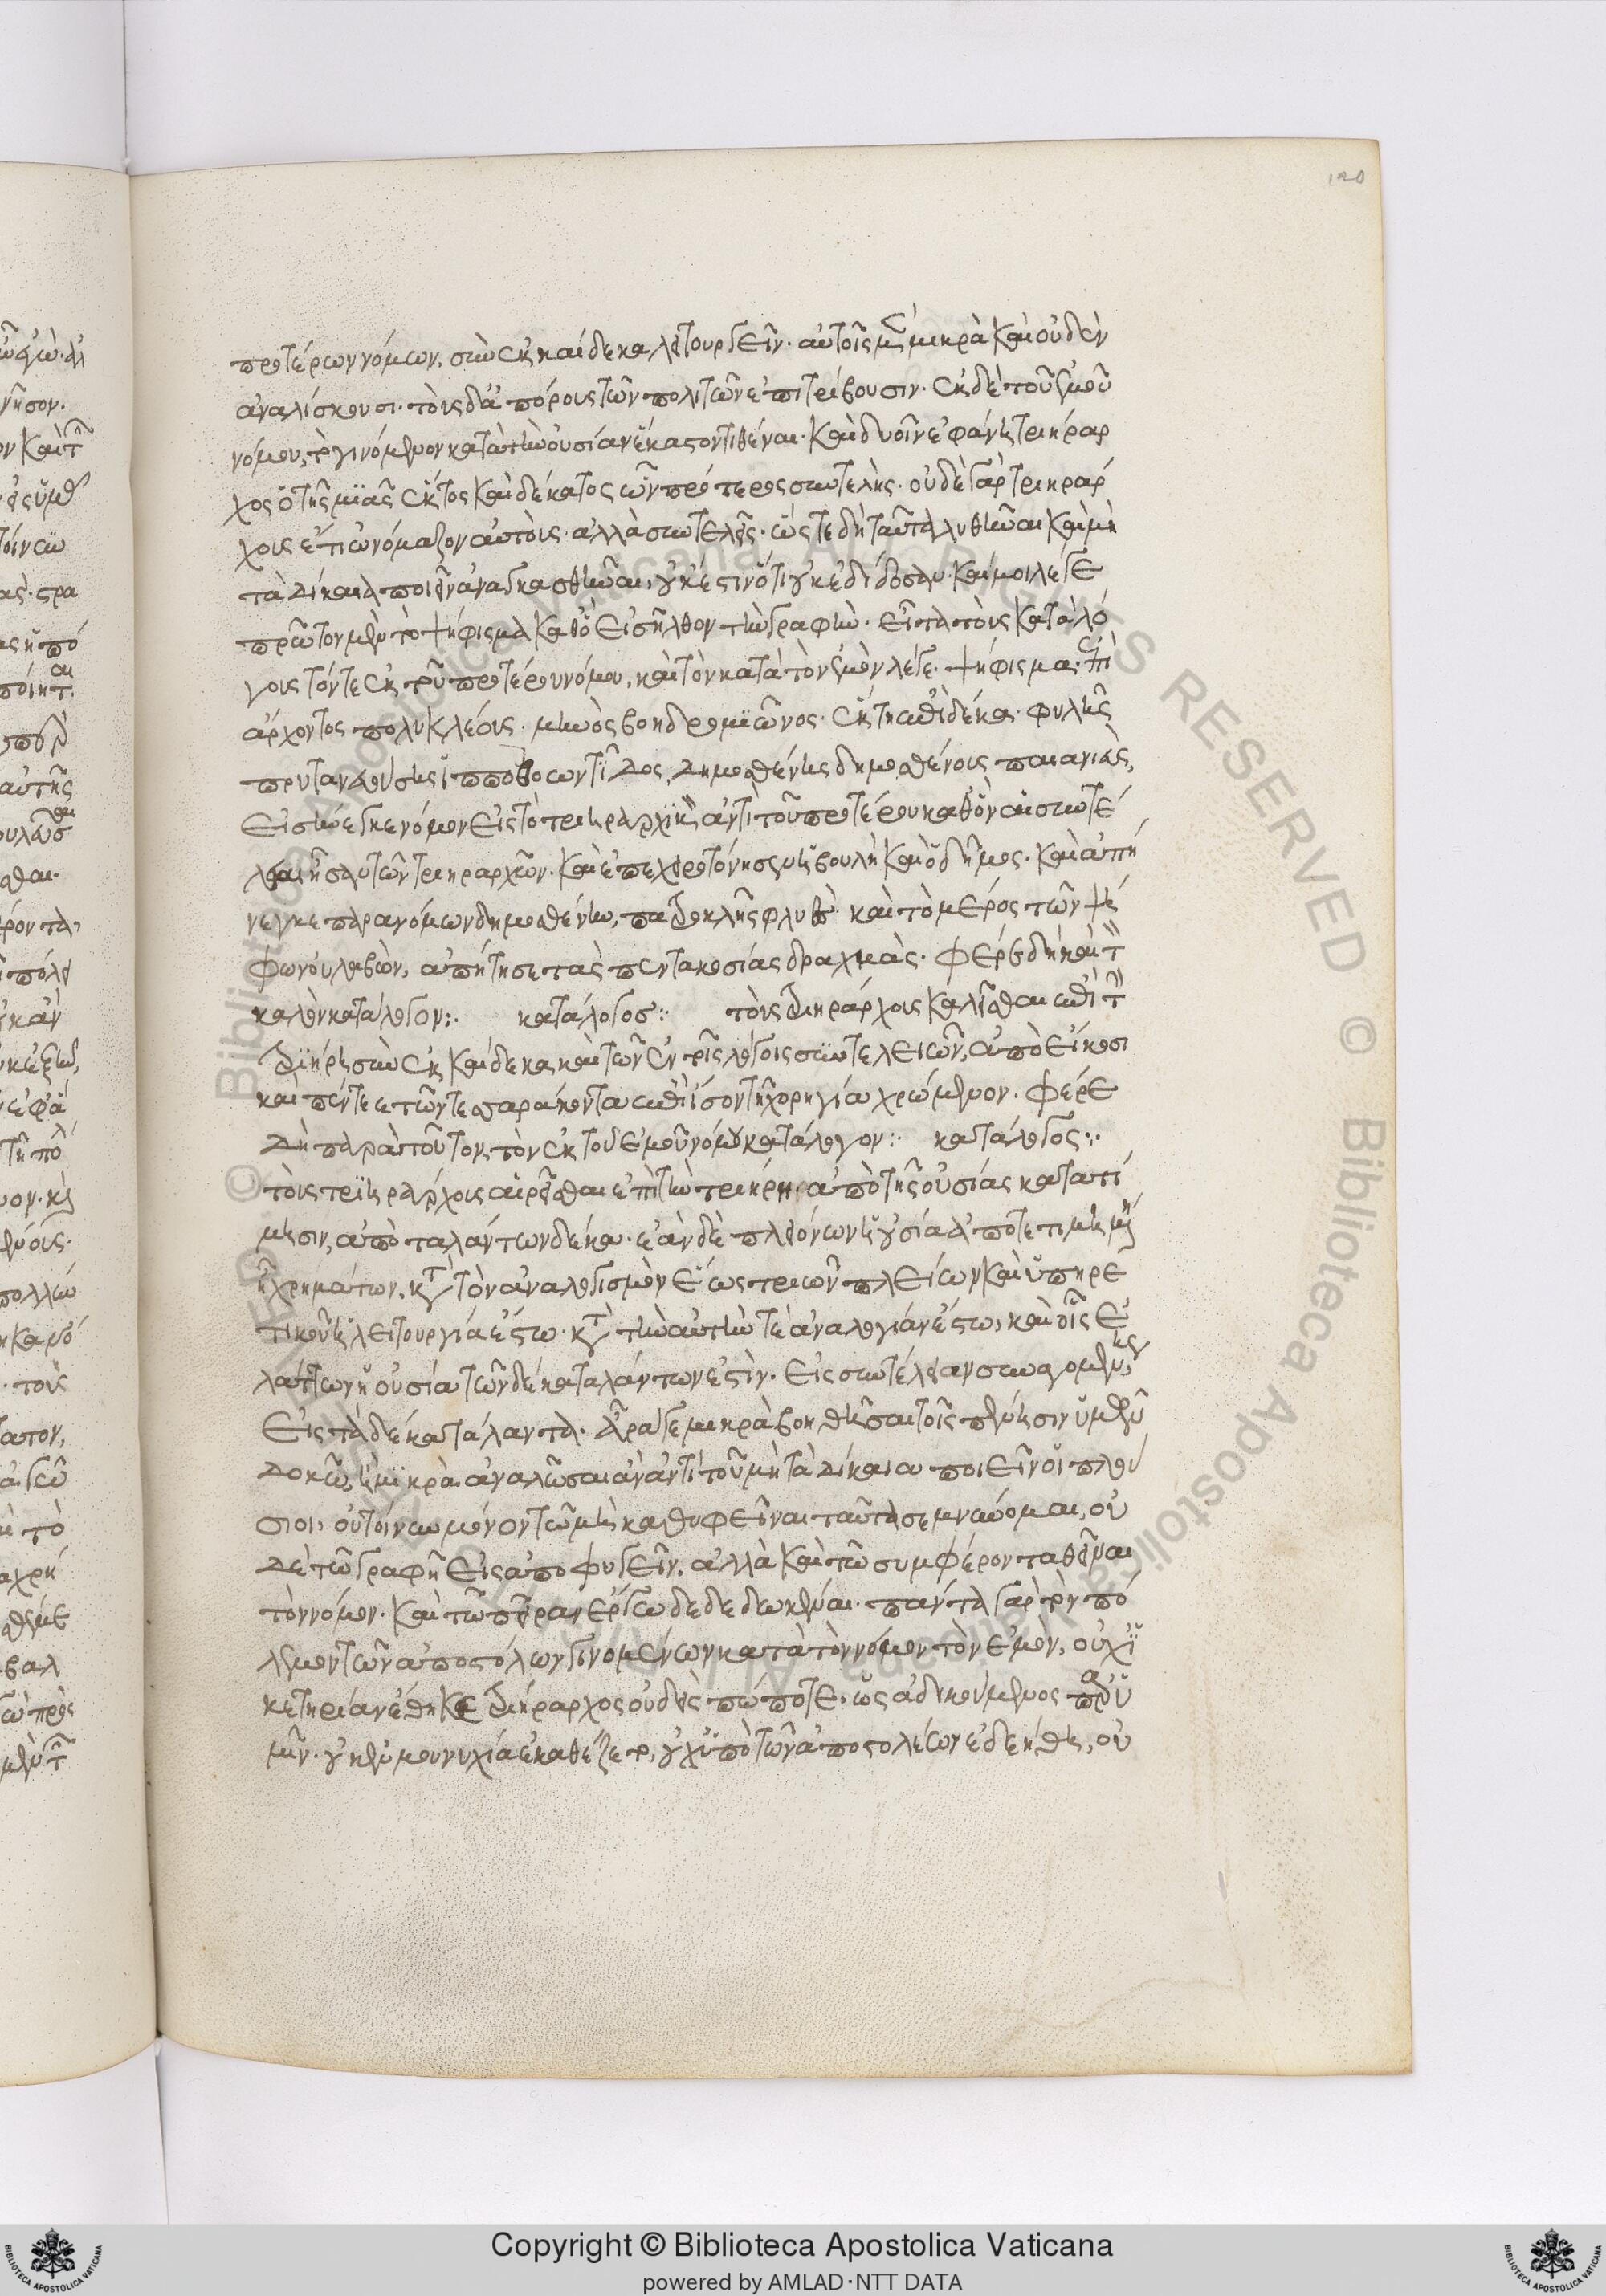 120
προτέρων νόμων, συνεκκαίδεκα λειτουργεῖν· αὐτοῖς μὲν μικρὰ καὶ οὐδὲν
ἀναλίσκουσι· τοῖς δ' ἀπόροις τῶν πολιτῶν ἐπιτρίβουσιν· ἐκ δὲ τοῦ ἐμοῦ
νόμου, τὸ γινόμενον κατὰ τὴν οὐσίαν ἕκαστον τιθέναι· καὶ δυοῖν ἐφάνη τριήραρ
χος ὁ τῆς μιᾶς ἕκτος καὶ δέκατος ὢν πρότερος συντελής· οὐδὲ γὰρ τριηράρ
χοις ἔτι ὠνόμαζον αὐτοὺς· ἀλλὰ συντελεῖς· ὥστε δὴ ταῦτα λυθῆναι καὶ μὴ
τὰ δίκαια ποιεῖν ἀναγκασθῆναι, οὐκ ἔστιν ὅτι οὐκ ἐδίδοσαν· καί μοι λέγε
πρῶτον μὲν τὸ ψήφισμα καθ' ὃ εἰσῆλθον τὴν γραφὴν· εἶτα τοὺς καταλό
γους τόν τε ἐκ τοῦ προτέρου νόμου, καὶ τὸν κατὰ τὸν ἐμὸν λέγε· ψήφισμα· ἐπὶ
ἄρχοντος πολυκλέους· μηνὸς βοηδρομιῶνος· ἕκτῃ ἐπὶ δέκα· φυλῆς
πρυτανευούσης ἱπποθοωντίδος, δημοσθένης δημοσθένους παιανιὰς,
εἰσήνεγκε νόμον εἰς τὸ τριηραρχικὸν ἀντὶ τοῦ προτέρου καθ' ὃν αἱ συντέ
λειαι ἦσαν τῶν τριηραρχῶν· καὶ ἐπεχειροτόνησεν ἡ βουλὴ καὶ ὁ δῆμος· καὶ ἀπή
νεγκε παρανόμων δημοσθένην, πατροκλῆς φλυεὺς· καὶ τὸ μέρος τῶν ψή
φων οὐ λαβὼν, ἀπήτησε τὰς πεντακοσίας δραχμὰς· φέρε δὴ καὶ τὸν
καλὸν κατάλογον:· κατάλογος:· τοὺς τριηράρχους καλεῖσθαι ἐπὶ τὴν
τριήρη συνεκκαίδεκα καὶ τῶν ἐν τοῖς λόγοις συντελειῶν, ἀπὸ εἴκοσι
καὶ πέντε ἐτῶν τεσσαράκοντα ἐπὶ ἴσον τῇ χορηγία χρώμενον· φέρε
δὴ παρὰ τοῦτον, τὸν ἐκ τοῦ ἐμοῦ νόμου κατάλογον:· κατάλογος:·
τοὺς τριηράρχους αἱρεῖσθαι ἐπὶ τὴν τριήρη ἀπὸ τῆς οὐσίας κατὰ τί
μησιν, ἀπὸ ταλάντων δέκα· ἐὰν δὲ πλειόνων ἡ οὐσία ἀποτετιμημένη
ᾖ χρημάτων, κατὰ τὸν ἀναλογισμὸν ἕως τριῶν πλείων καὶ ὑπηρε
τικοῦ ἡ λειτουργία ἔστω· κατὰ τὴν αὐτὴν τε ἀναλογίαν ἔστω, καὶ οἷς ἐ
λάττων ἡ οὐσία τῶν δέκα ταλάντων ἐστὶν· εἰς συντέλειαν συναγομένοις
εἰς τὰ δέκα τάλαντα· ἆρά γε μικρὰ βοηθῆσαι τοῖς πένησιν ὑμῶν
δοκῶ, ἢ μικρὰ ἀναλῶσαι ἂν ἀντὶ τοῦ μὴ τὰ δίκαια ποιεῖν οἱ πλού
σιοι, οὐ τοίνυν μόνον τῶ μὴ καθυφεῖναι ταῦτα σεμνύομαι, οὐ
δὲ τῶ γραφῆ εἰς ἀποφυγεῖν, ἀλλὰ καὶ τῶ συμφέροντα θεῖναι
τὸν νόμον· καὶ τῶ πεῖραν ἔργω δεδωκέναι· πάντα γὰρ τὸν πό
λεμον τῶν ἀποστόλων γινομένων κατὰ τὸν νόμον τὸν ἐμὸν, οὐχ ἱ
κετηρίαν ἔθηκε τριήραρχος οὐδεὶς πώποτε, ὡς ἀδικούμενος παρ' ὑ
μῖν· οὐκ ἐν μουνυχία ἐκαθέζετο, οὐχ ὑπὸ τῶν ἀποστολέων ἐδεήθη, οὐ
© Biblioteca Apostolica Vaticana ALL RIGHTS RESERVED
Copyright © Biblioteca Apostolica Vaticana
powered by AMLAD·NTT DATA